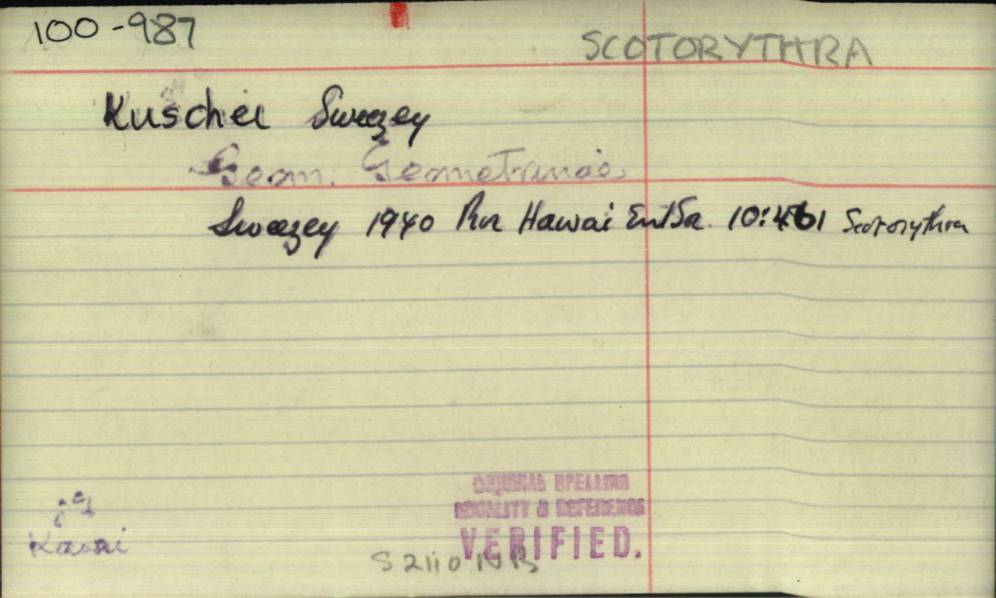 100-987
SCOTORYTHRA
Kuschei Swezey
Geom. Geometrinae
Swezey 1940 Hawai Ent So. 10:461 Scotorythra
ORIGINAL SPELLING
LOCALITY & REFERENCE
VERIFIED.
Kauai
S2110NB